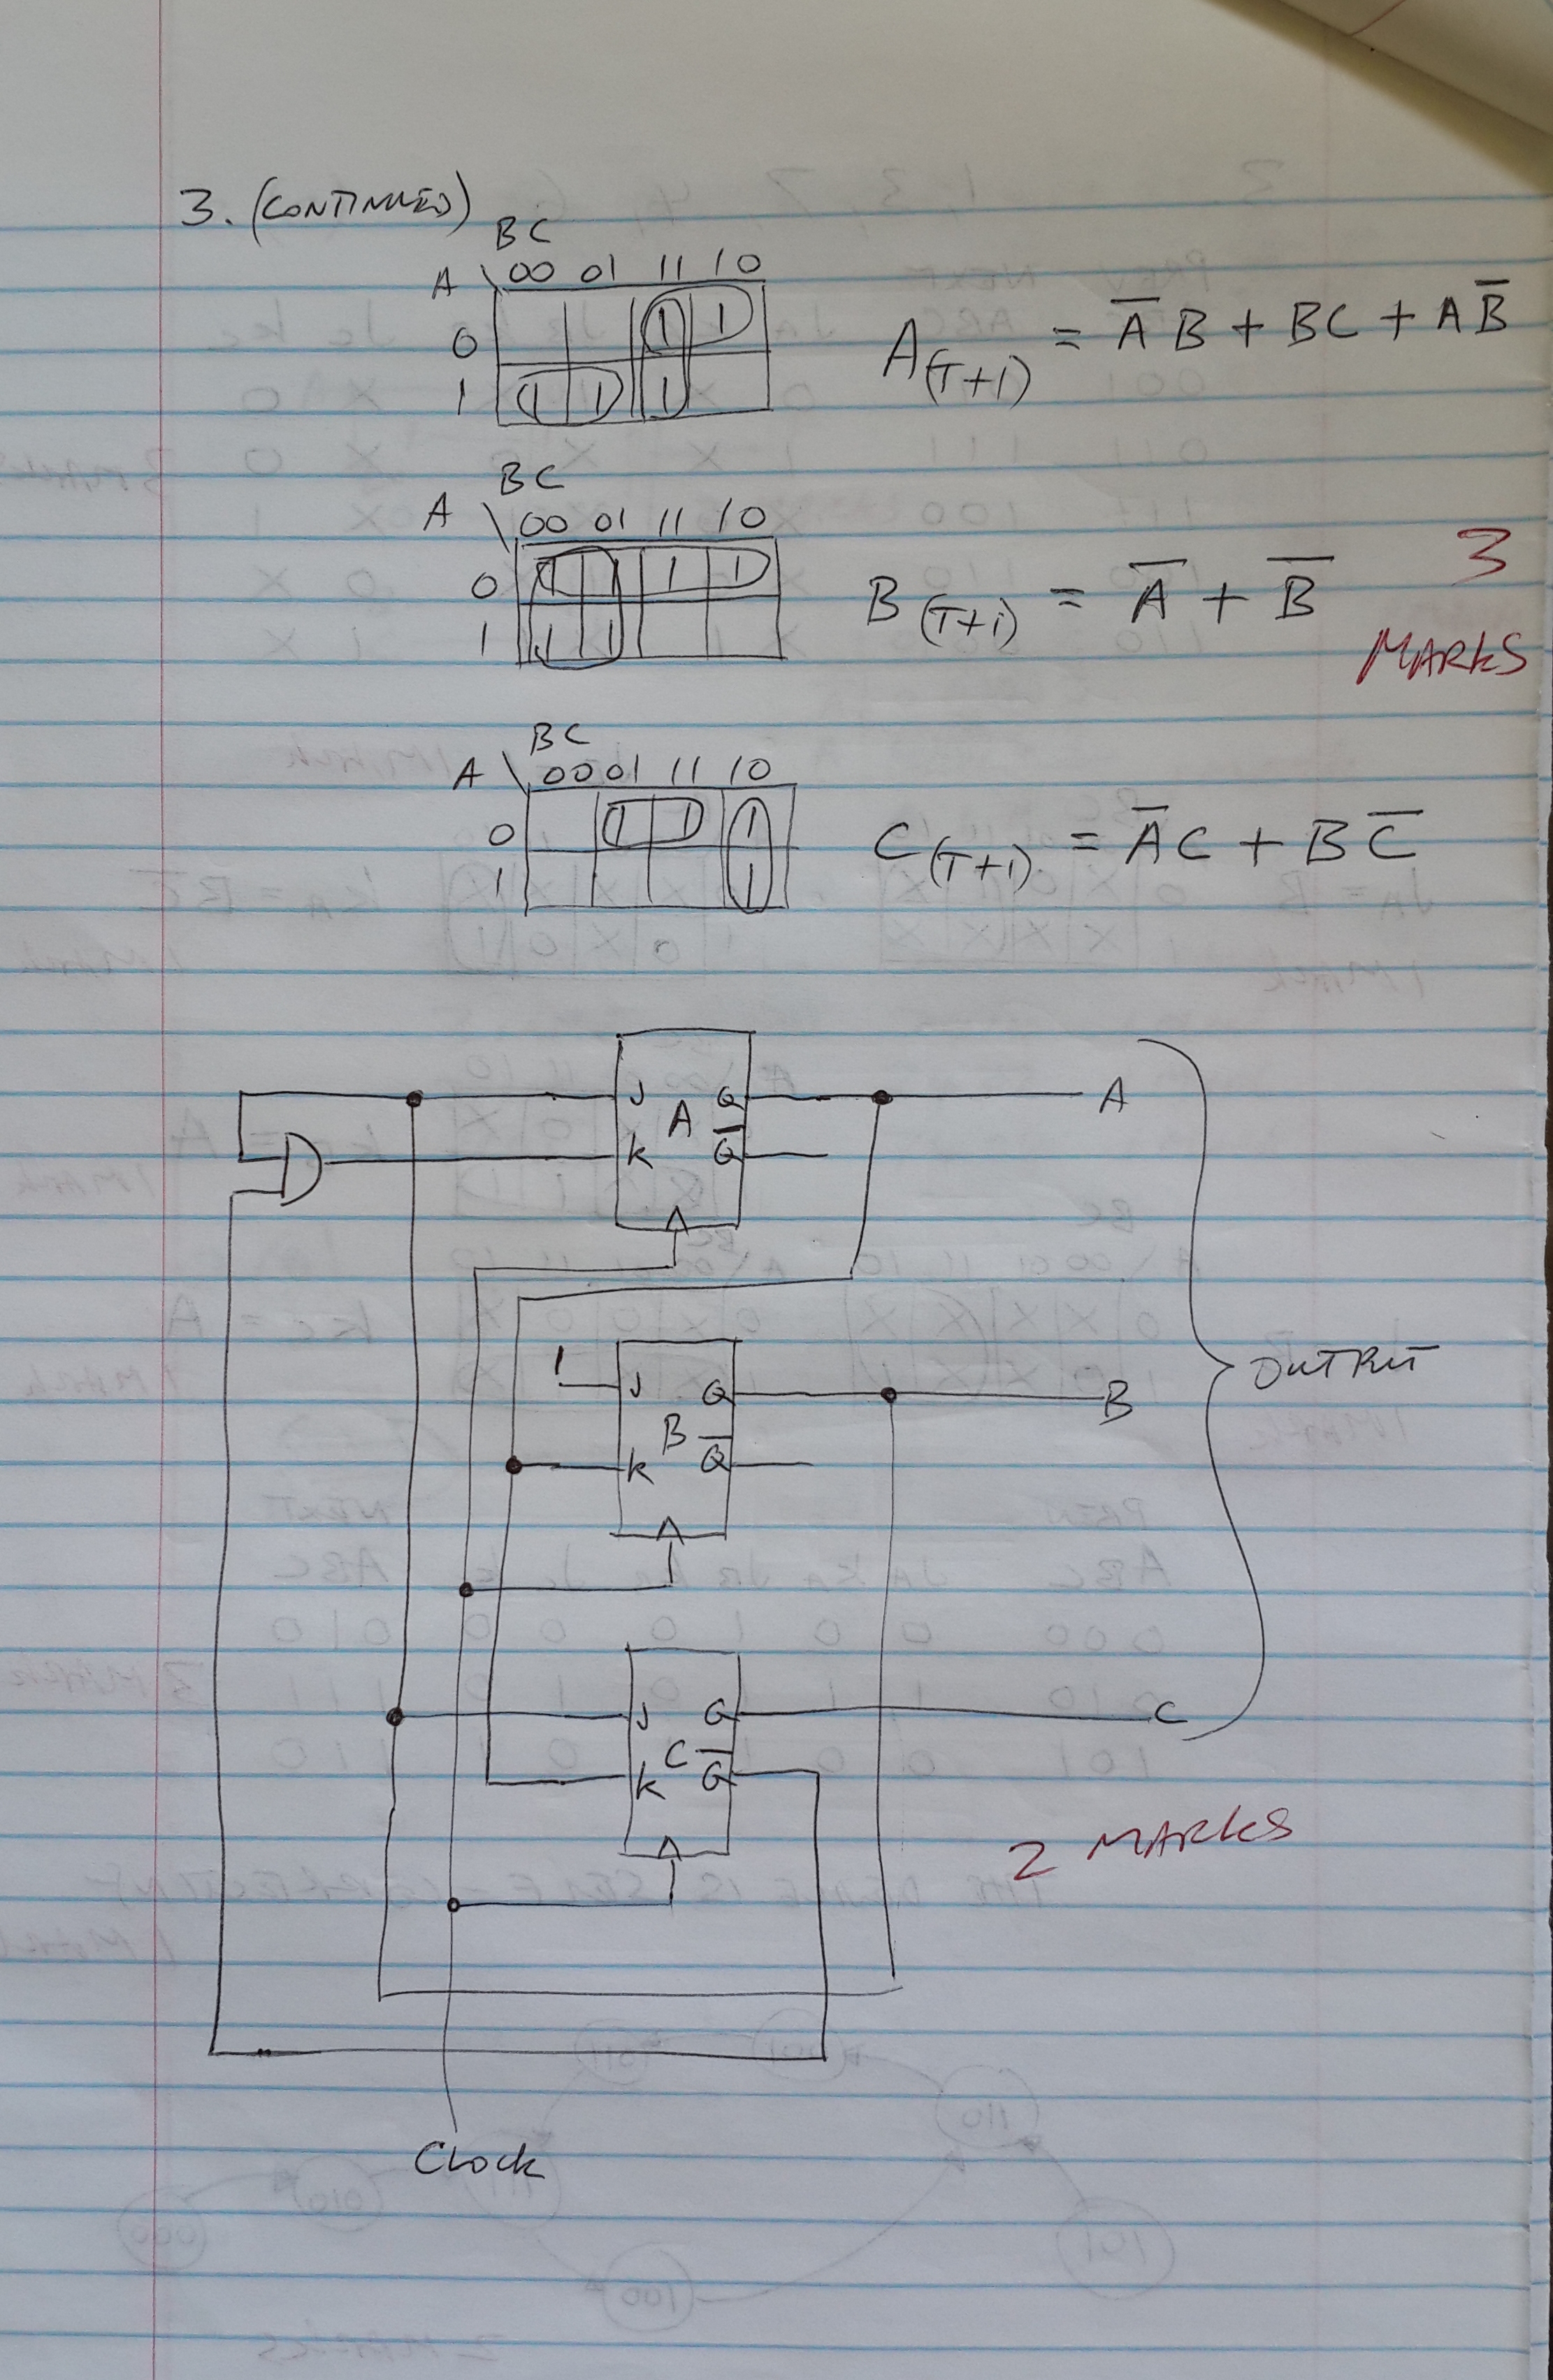 3. (CONTINUED)
BC
A \ 00 01 11 10
0 1 1
1 1 1 1
A(T+1) = A̅B + BC + AB̅
BC
A \ 00 01 11 10
0 1 1 1 1
1 1 1
B(T+1) = A̅ + B̅
3
MARKS
BC
A \ 00 01 11 10
0 1 1 1
1 1
C(T+1) = A̅C + BC̅
J Q A
A
K Q̅
1 J Q B
B
K Q̅
OUTPUT
J Q C
C
K Q̅
2 MARKS
CLOCK